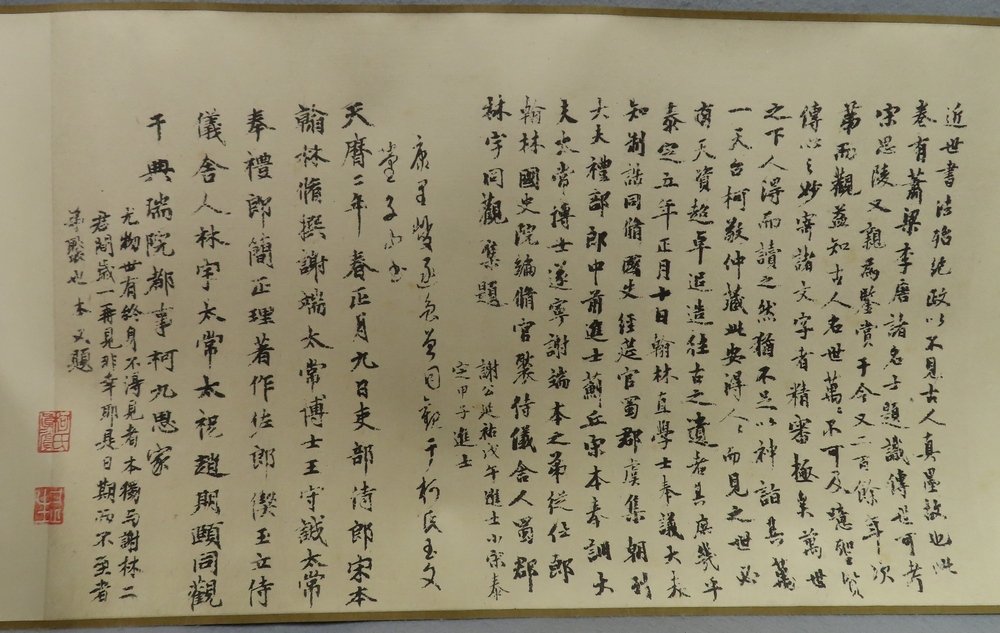 近世書法殆絕政以不見古人真墨故也此
卷有蕭梁李唐諸名士題識傳世可考
宋思陵又親為鑒賞于今又二百餘年次
第而觀益知古人名世萬萬不可及噫聖賢
傳心之妙寄諸文字者精審極矣萬世
之下人得而讀之然猶不足以神詣其萬
一天台柯敬仲藏此安得人人而見之世必
有天資超卓追造往古之遺者其庶幾乎
泰定五年正月十日翰林直學士奉議大夫
知制誥同脩國史經筵官蜀郡虞集朝列
大夫禮部郎中前進士薊丘宋本奉訓大
夫太常博士遂寧謝端本之弟從仕郎
翰林國史院編脩官褧侍儀舍人蜀郡
林宇同觀集題
謝公延祐戊午進士小宋泰
定甲子進士
康里巎
同觀于柯氏玉文
堂子山書
天曆二年春正月九日吏部侍郎宋本
翰林脩撰謝端太常博士王守誠太常
奉禮郎簡正理著作佐郎偰玉立侍
儀舍人林宇太常太祝趙期頤同觀
于典瑞院都事柯九思家
尤物世有終身不得見者本獨與謝林二
君間歲一再見非幸耶是日期而不至者
弟褧也本又題